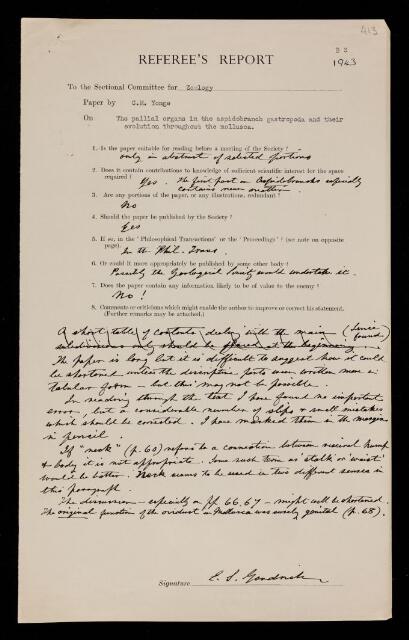 413
REFEREE'S REPORT
1943
To the Sectional Committee for Zoology
Paper by C.M. Yonge
On The pallial organs in the aspidobranch gastropoda and their
evolution throughout the mollusca.
1. Is the paper suitable for reading before a meeting of the Society?
only in abstract of selected portions
2. Does it contain contributions to knowledge of sufficient scientific interest for the space
required? Yes. The first part on Aspidobranchs especially
contains new matter.
3. Are any portions of the paper, or any illustrations, redundant?
No
4. Should the paper be published by the Society?
Yes
5. If so, in the 'Philosophical Transactions' or the 'Proceedings'? (see note on opposite
page). In the Phil. Trans.
6. Or could it more appropriately be published by some other body?
Possibly the Zoological Society would undertake it.
7. Does the paper contain any information likely to be of value to the enemy?
No!
8. Comments or criticisms which might enable the author to improve or correct his statement.
(Further remarks may be attached.)
A short table of contents dealing with the main (Since
subdivisions only should be placed at the beginning. found)
The paper is long but it is difficult to suggest how it could
be shortened unless the descriptive parts were written more in
tabular form - but this may not be possible.
In reading through the text I have found no important
error, but a considerable number of slips & small mistakes
which should be corrected. I have marked them in the margin
in pencil.
If "neck" (p. 60) refers to a connection between visceral hump
& body it is not appropriate. Some such term as 'stalk' or 'waist'
would be better. Neck seems to be used in two different senses in
this paragraph.
The discussion - especially on pp. 66, 67 - might well be shortened.
The original function of the oviduct in Mollusca was surely genital (p. 68).
Signature E. S. Goodrich